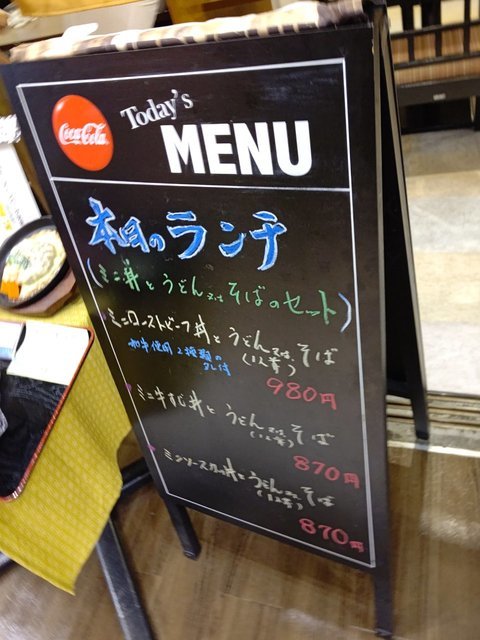 Coca-Cola
Today's
MENU
本日のランチ
(ミニ丼とうどん又はそばのセット)
ミニローストビーフ丼とうどん又はそば
和牛使用 2種類の
980円
ミニ牛すじ丼とうどん又はそば
870円
ミニソースカツ丼とうどん又はそば
870円